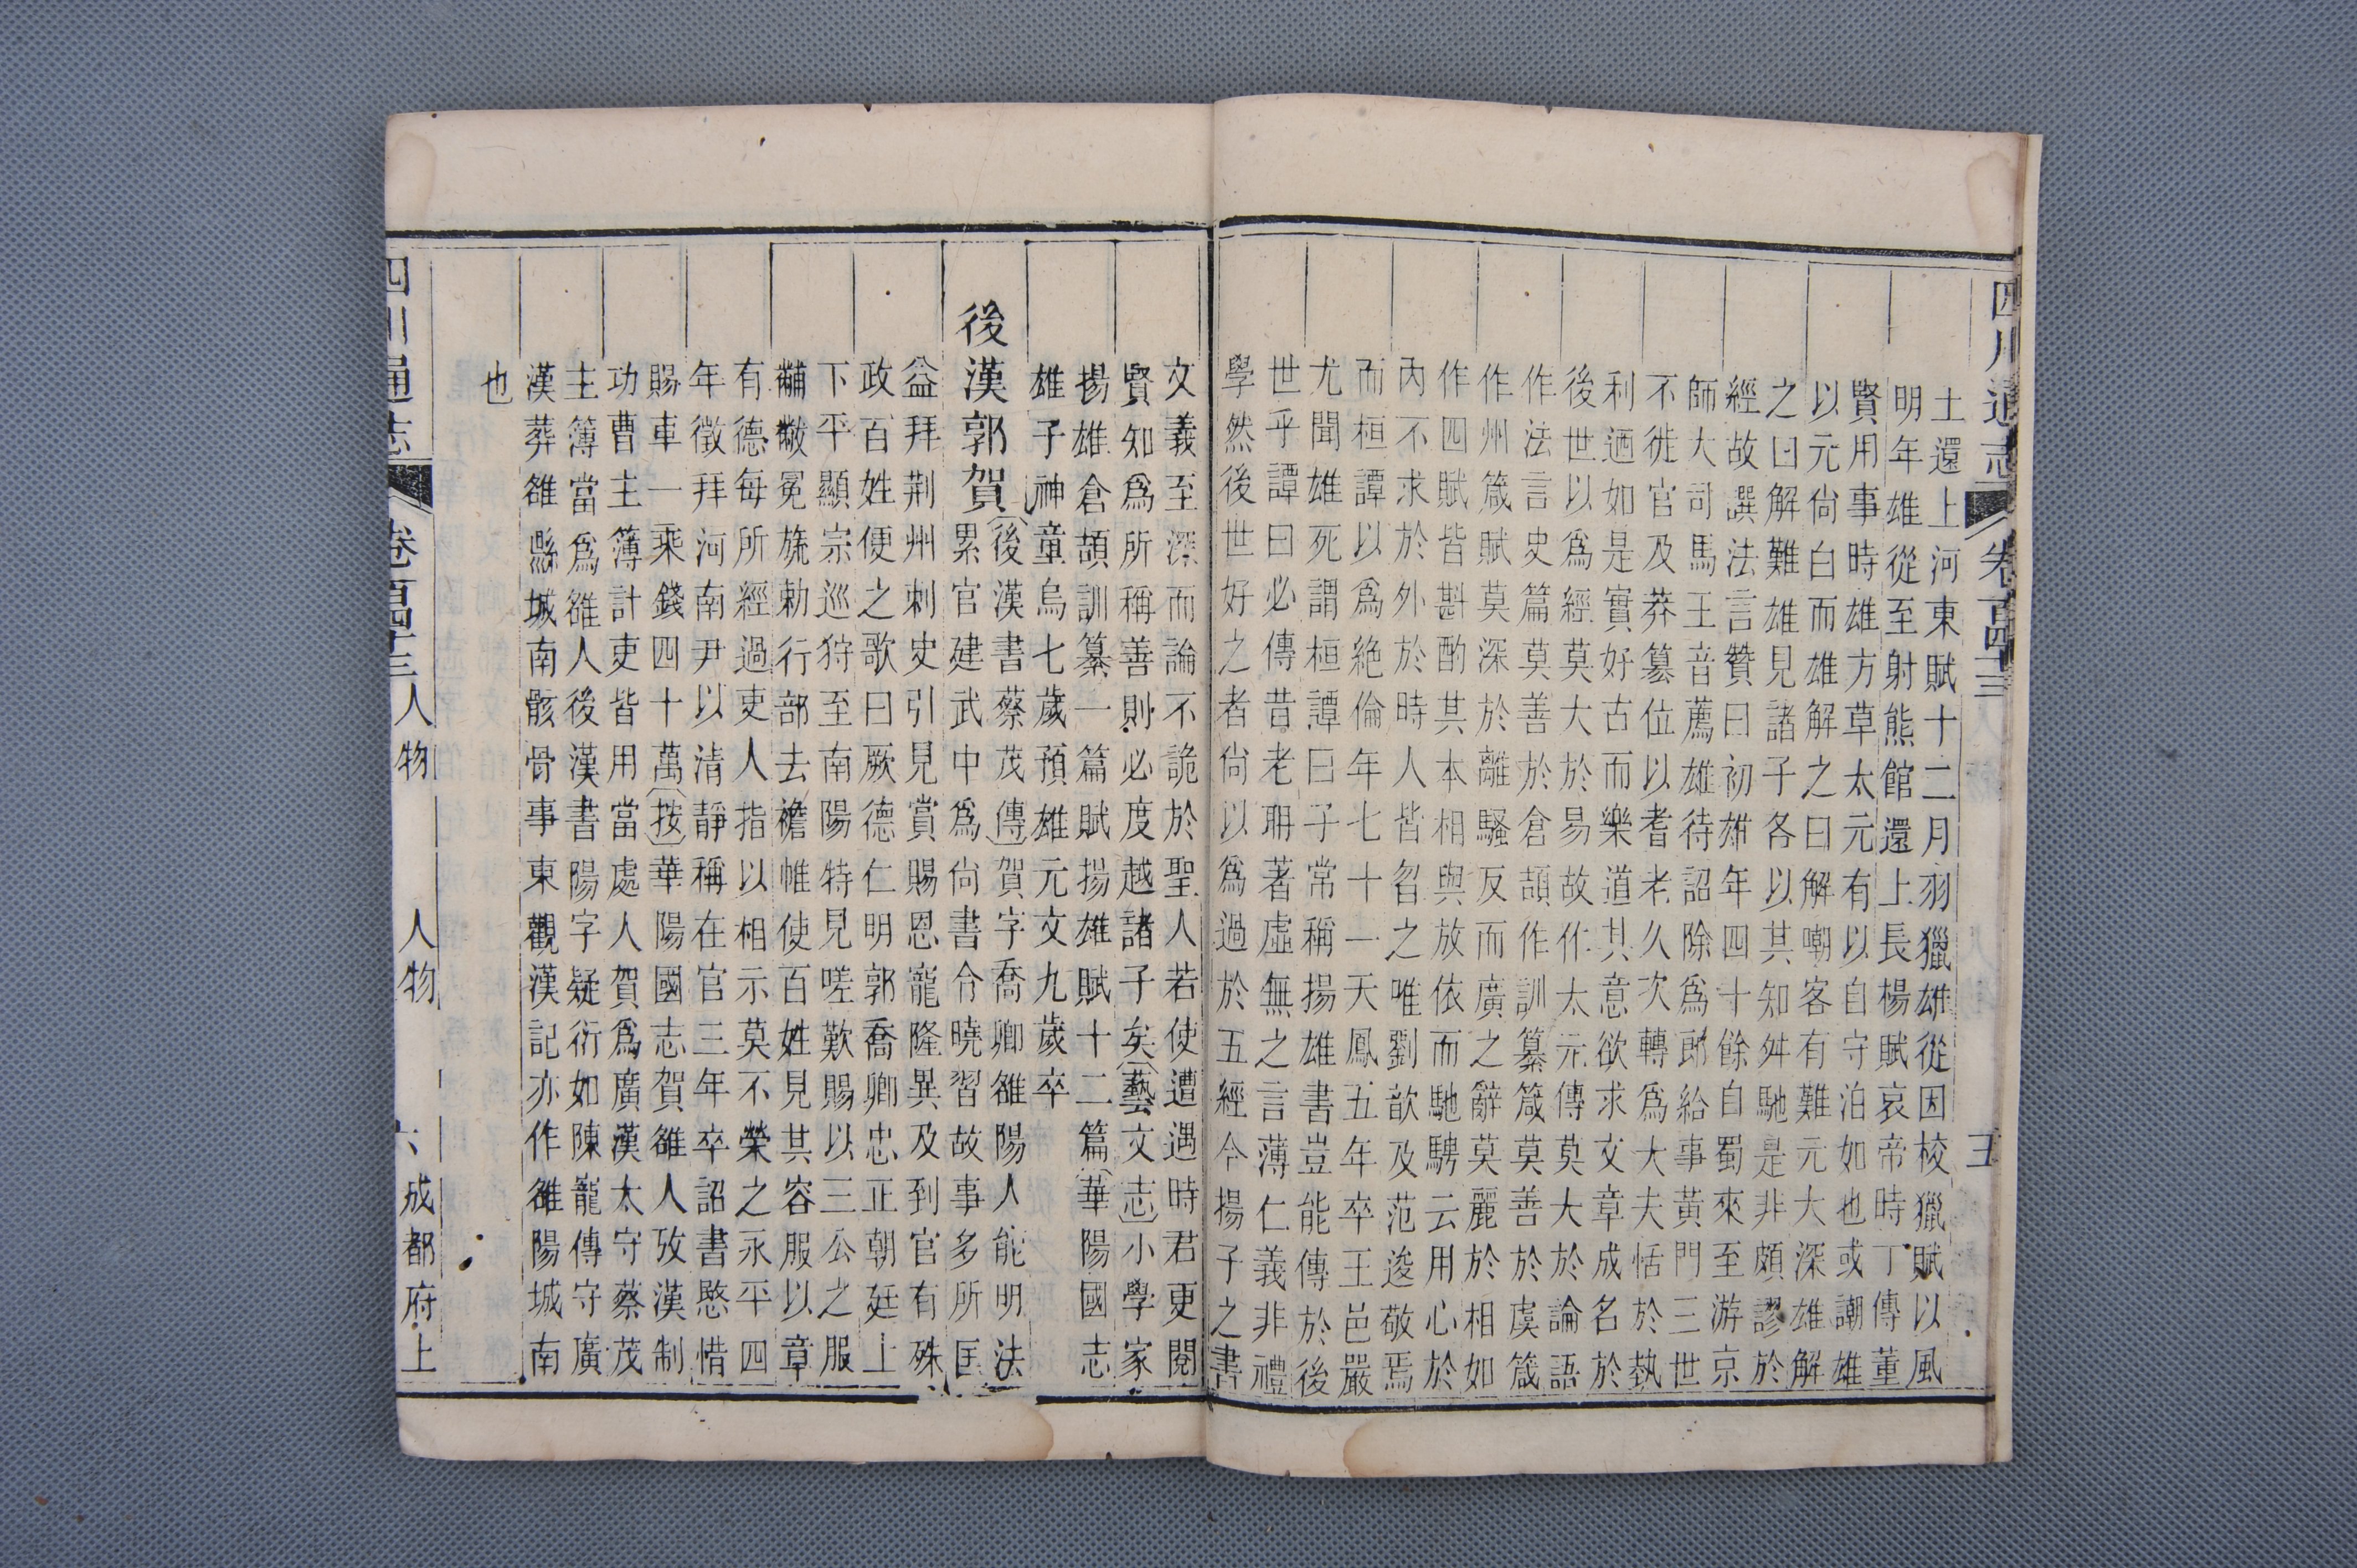 四川通志 卷一百四十三 人物 五
土還上河東賦十二月羽獵雄從因校獵賦以風
明年雄從至射熊館還上長楊賦哀帝時丁傅董
賢用事時雄方草太元有以自守泊如也或潮雄
以元尙白而雄解之曰解嘲客有難元大深雄解
之曰解難雄見諸子各以其知舛馳是非頗謬於
經故譔法言贊曰初雄年四十餘自蜀來至游京
師大司馬王音薦雄待詔除爲郎給事黃門三世
不徙官及莽篡位以耆老久次轉爲大夫恬於埶
利迺如是實好古而樂道其意欲求文章成名於
後世以爲經莫大於易故作太元傳莫大於論語
作法言史篇莫善於倉頡作訓纂箴莫善於虞箴
作州箴賦莫深於離騷反而廣之辭莫麗於相如
作四賦皆斟酌其本相與放依而馳騁云用心於
內不求於外於時人皆曶之唯劉歆及范逡敬焉
而桓譚以爲絶倫年七十一天鳳五年卒王邑嚴
尤聞雄死謂桓譚曰子常稱揚雄書豈能傳於後
世乎譚曰必傳昔老聃著虛無之言薄仁義非禮
學然後世好之者尙以爲過於五經今揚子之書
文義至深而論不詭於聖人若使遭遇時君更閱
賢知爲所稱善則必度越諸子矣〔藝文志〕小學家
揚雄倉頡訓纂一篇賦揚雄賦十二篇〔華陽國志
雄子神童烏七歲預雄元文九歲卒
後漢郭賀〔後漢書蔡茂傳〕賀字喬卿雒陽人能明法
累官建武中爲尙書令曉習故事多所匡
益拜荆州刺史引見賞賜恩寵隆異及到官有殊
政百姓便之歌曰厥德仁明郭喬卿忠正朝廷上
下平顯宗巡狩至南陽特見嗟歎賜以三公之服
黼黻冕旒勅行部去襜帷使百姓見其容服以章
有德每所經過吏人指以相示莫不榮之永平四
年徵拜河南尹以清靜稱在官三年卒詔書愍惜
賜車一乘錢四十萬〔按〕華陽國志賀雒人攷漢制
功曹主簿計吏皆用當處人賀爲廣漢太守蔡茂
主簿當爲雒人後漢書陽字疑衍如陳寵傳守廣
漢葬雒縣城南骸骨事東觀漢記亦作雒陽城南
也
四川通志 卷一百四十三 人物 人物 六 成都府上